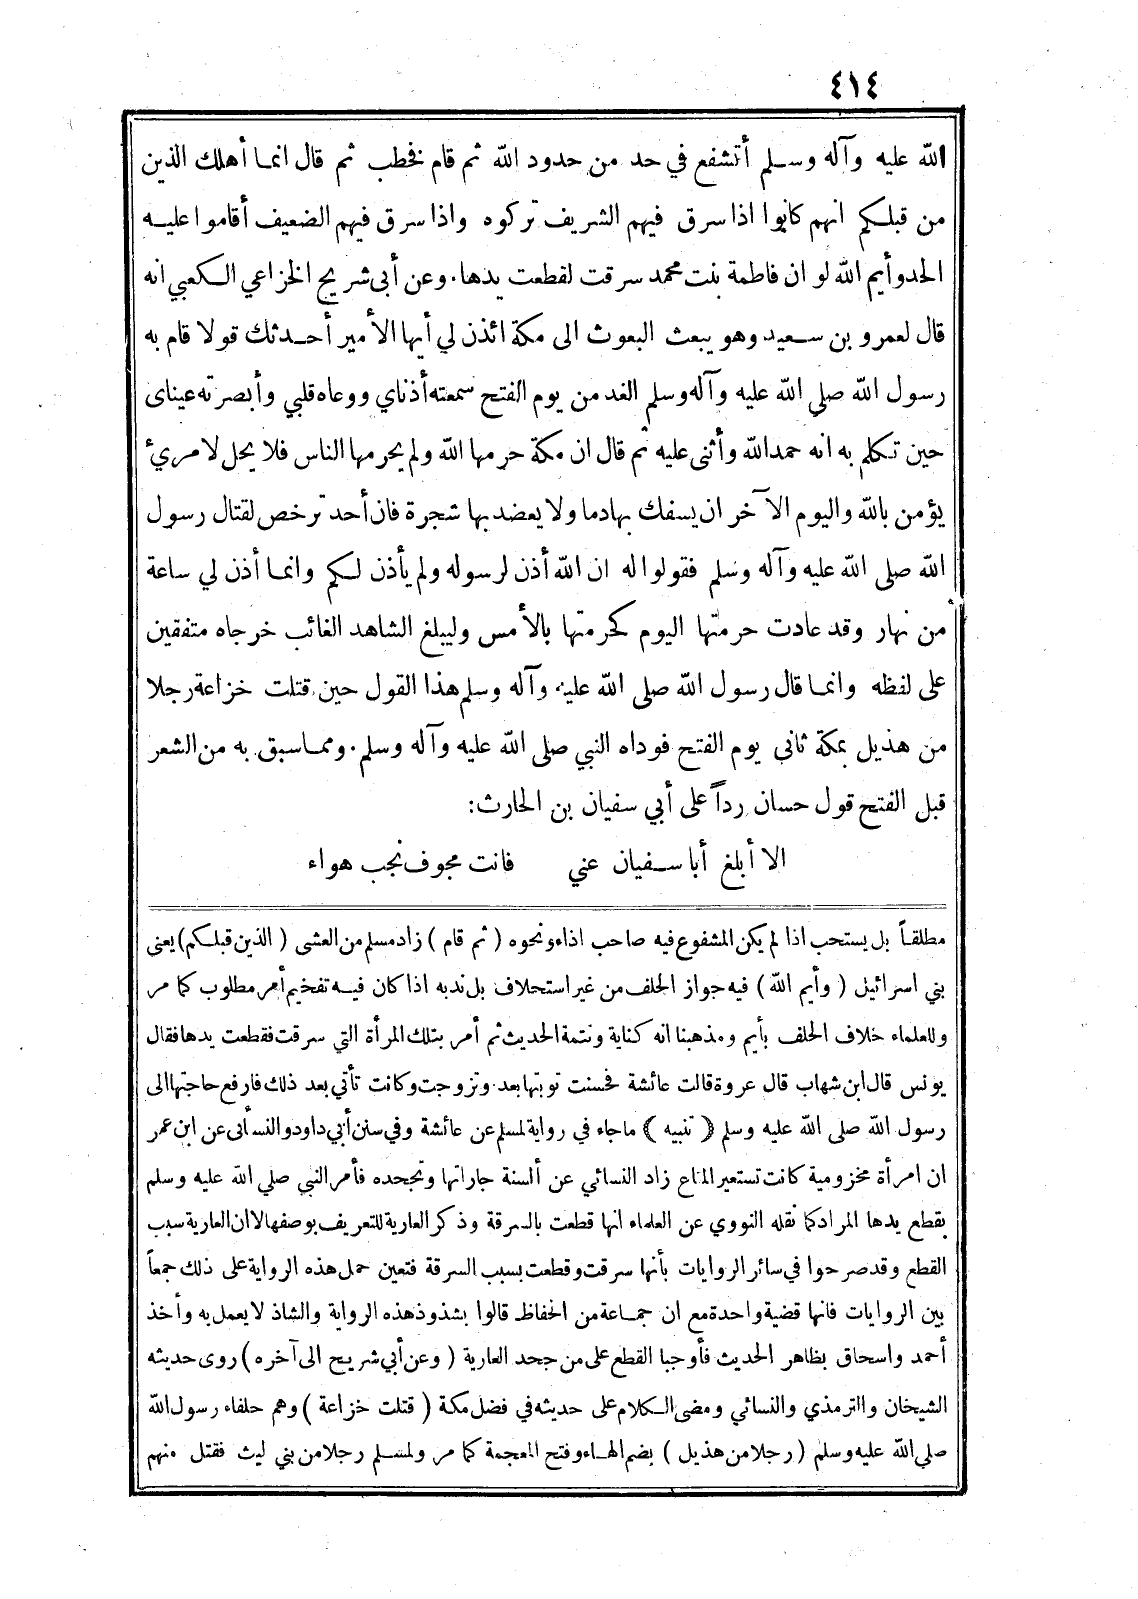 ٤١٤
الله عليه وآله وسلم أتشفع في حد من حدود الله ثم قام فخطب ثم قال انما أهلك الذين
من قبلكم انهم كانوا اذا سرق فيهم الشريف تركوه واذا سرق فيهم الضعيف أقاموا عليه
الحد وأيم الله لو ان فاطمة بنت محمد سرقت لقطعت يدها. وعن أبي شريح الخزاعي الكعبي انه
قال لعمرو بن سعيد وهو يبعث البعوث الى مكة ائذن لي أيها الأمير أحدثك قولا قام به
رسول الله صلى الله عليه وآله وسلم الغد من يوم الفتح سمعته أذناي ووعاه قلبي وأبصرته عيناى
حين تكلم به انه حمد الله وأثنى عليه ثم قال ان مكة حرمها الله ولم يحرمها الناس فلا يحل لامرئ
يؤمن بالله واليوم الآخر ان يسفك بها دما ولا يعضد بها شجرة فان أحد ترخص لقتال رسول
الله صلى الله عليه وآله وسلم فقولوا له ان الله أذن لرسوله ولم يأذن لكم وانما أذن لي ساعة
من نهار وقد عادت حرمتها اليوم كحرمتها بالأمس وليبلغ الشاهد الغائب خرجاه متفقين
على لفظه وانما قال رسول الله صلى الله عليه وآله وسلم هذا القول حين قتلت خزاعة رجلا
من هذيل بمكة ثاني يوم الفتح فوداه النبي صلى الله عليه وآله وسلم. ومما سبق به من الشعر
قبل الفتح قول حسان رداً على أبي سفيان بن الحارث:
الا أبلغ أبا سفيان عني فانت مجوف نجب هواء
مطلقاً بل يستحب اذا لم يكن المشفوع فيه صاحب اذاء ونحوه ( ثم قام ) زاد مسلم من العشى ( الذين قبلكم ) يعنى
بني اسرائيل ( وأيم الله ) فيه جواز الحلف من غير استحلاف بل ندبه اذا كان فيه تفخيم أمر مطلوب كما مر
وللعلماء خلاف الحلف بأيم ومذهبنا انه كناية وتتمة الحديث ثم أمر بتلك المرأة التي سرقت فقطعت يدها فقال
يونس قال ابن شهاب قال عروة قالت عائشة فحسنت توبتها بعد وتزوجت وكانت تأتي بعد ذلك فارفع حاجتها الى
رسول الله صلى الله عليه وسلم ( تنبيه ) ما جاء في رواية لمسلم عن عائشة وفي سنن أبي داود والنسأى عن ابن عمر
ان امرأة مخزومية كانت تستعير المتاع زاد النسائي عن ألسنة جاراتها وتجحده فأمر النبي صلى الله عليه وسلم
بقطع يدها المراد كما نقله النووي عن العلماء انها قطعت بالسرقة وذكر العارية للتعريف بوصفها لا ان العارية سبب
القطع وقد صرحوا في سائر الروايات بأنها سرقت وقطعت بسبب السرقة فتعين حمل هذه الرواية على ذلك جمعاً
بين الروايات فانها قضية واحدة مع ان جماعة من الحفاظ قالوا بشذوذ هذه الرواية والشاذ لا يعمل به وأخذ
أحمد واسحاق بظاهر الحديث فأوجبا القطع على من جحد العارية ( وعن أبي شريح الى آخره ) روى حديثه
الشيخان والترمذي والنسائي ومضى الكلام على حديثه في فضل مكة ( قتلت خزاعة ) وهم حلفاء رسول الله
صلى الله عليه وسلم ( رجلا من هذيل ) بضم الهاء وفتح المعجمة كما مر ولمسلم رجلا من بني ليث فقتل منهم